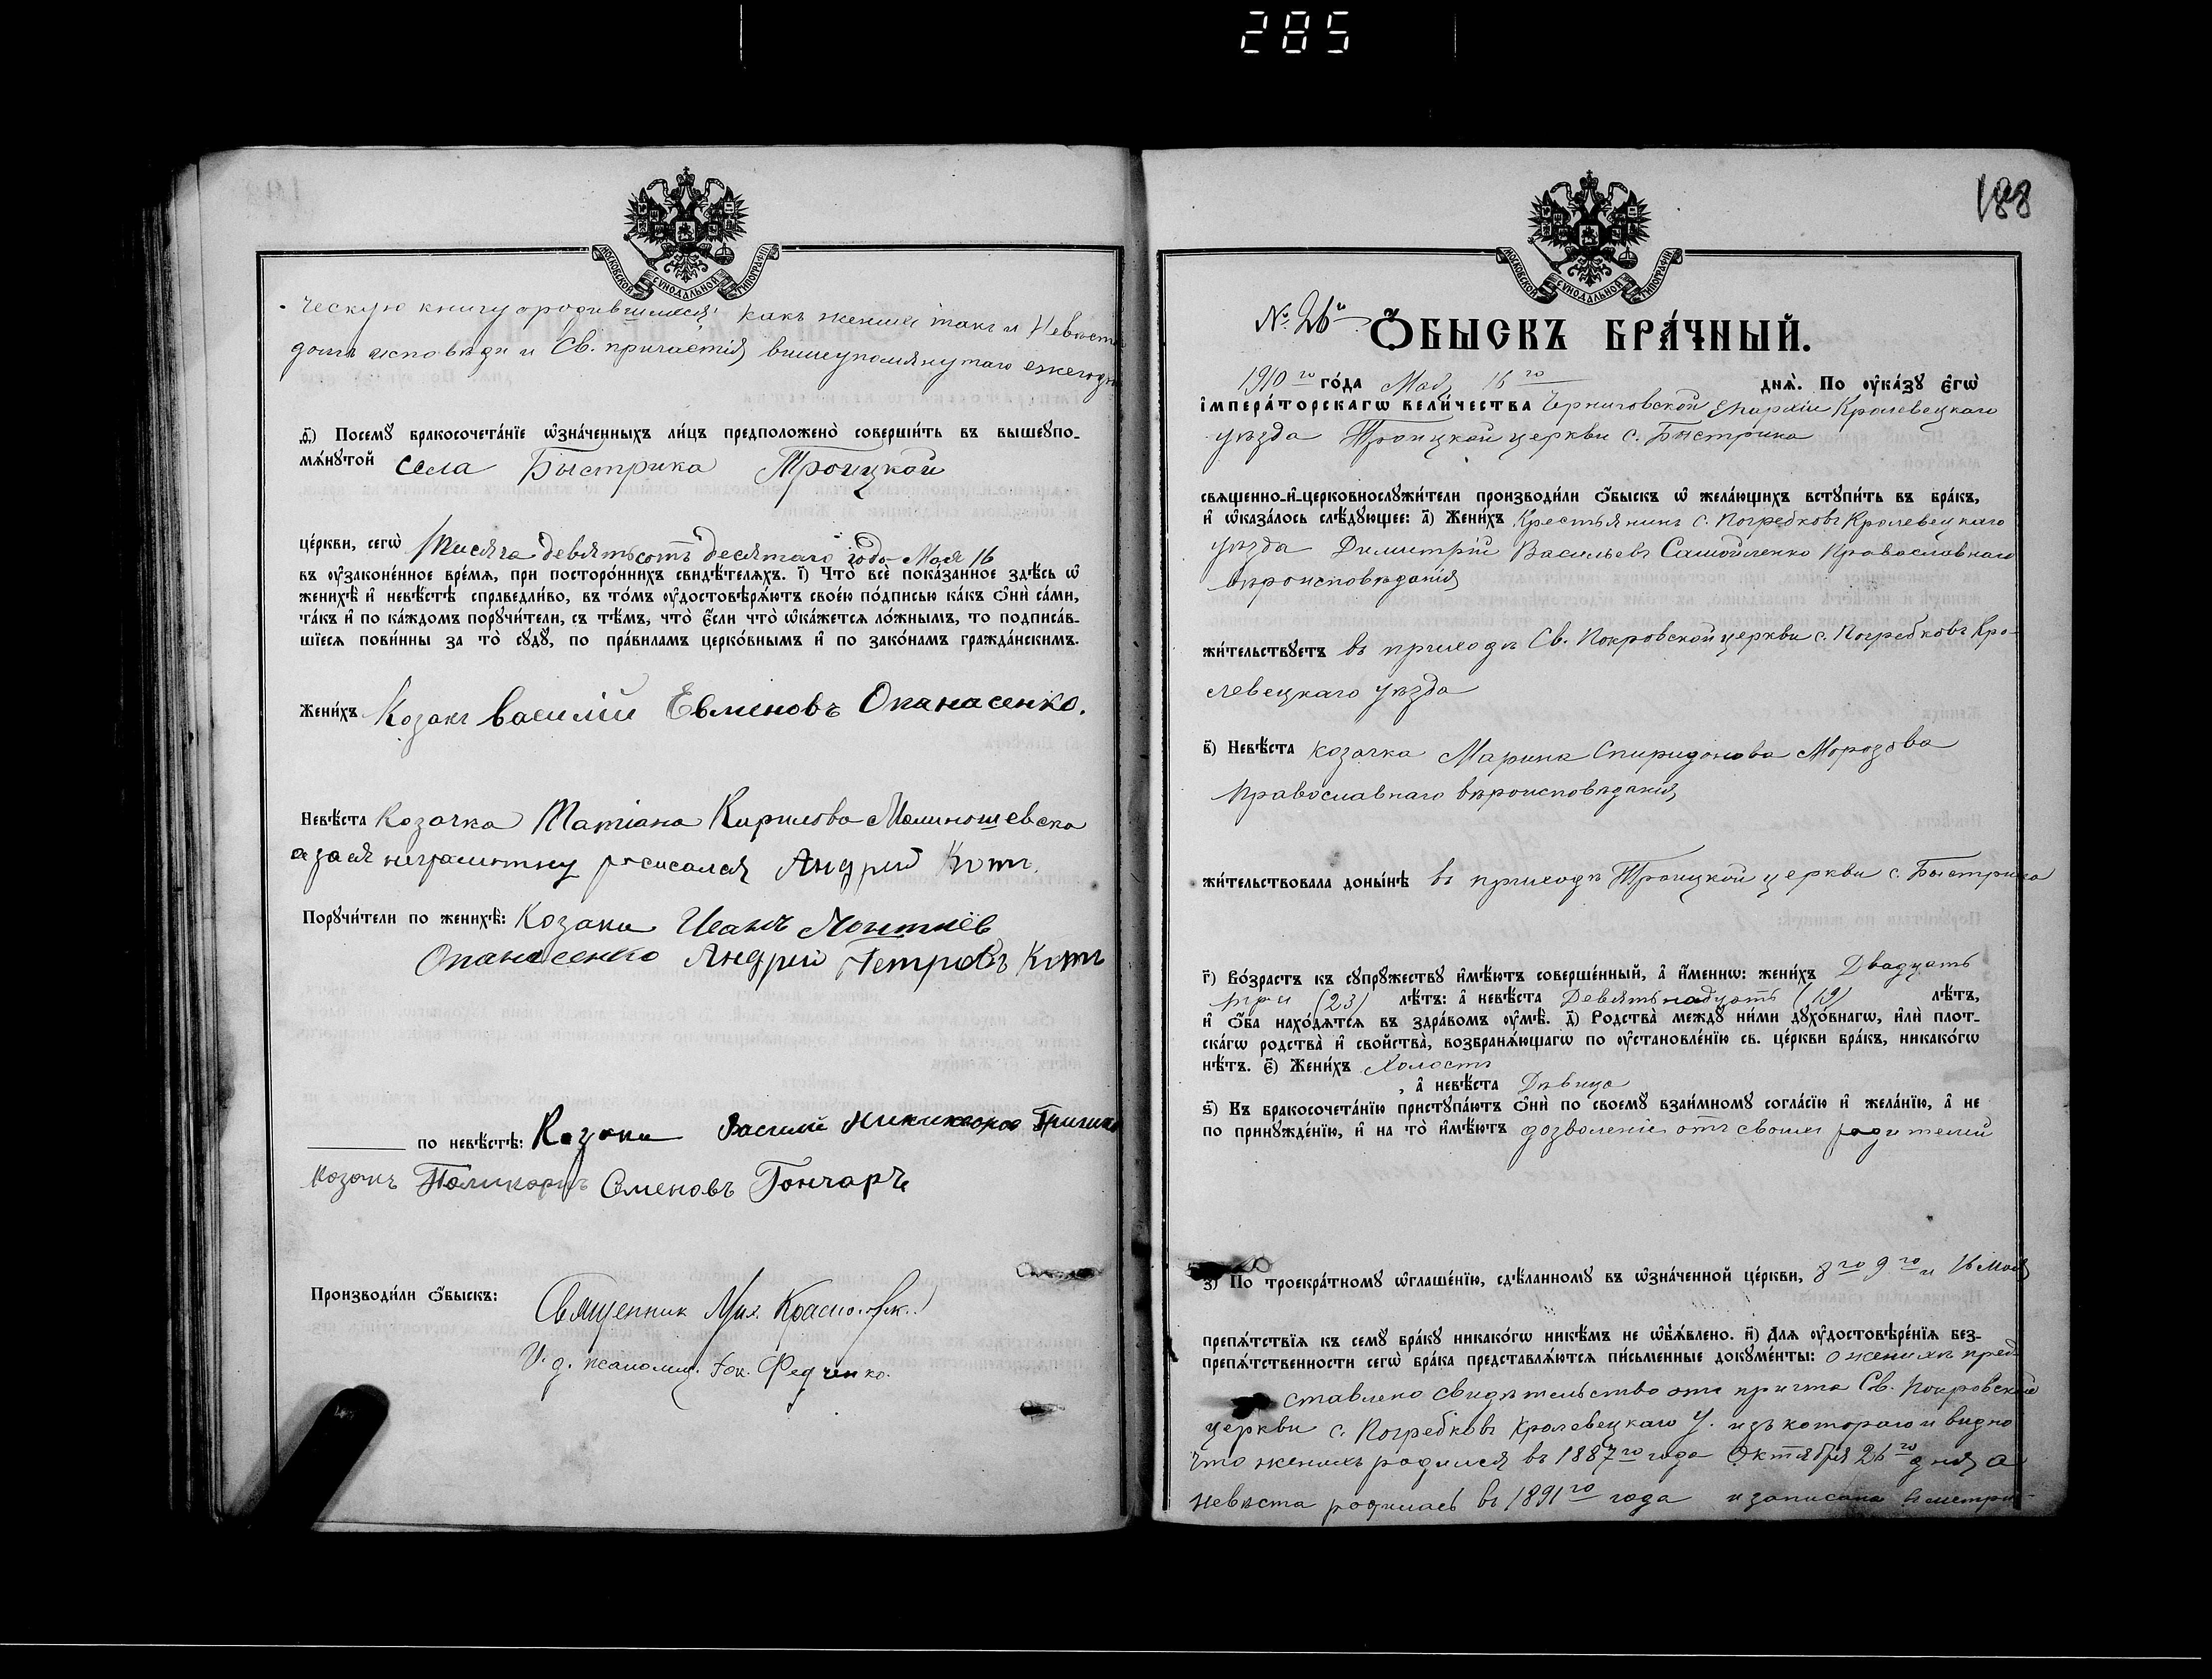 285
МОСКОВСКОЙ СѴНОДАЛЬНОЙ ТИПОГРАФІИ
ческую книгу о родившихся какъ жениха такъ и невѣста
дома исповѣди и Св. причастія вышеупомянутаго ежегодно
д҃) Посемꙋ бракосочета́нїе ѡ҆зна́ченныхъ ли́цъ предположено̀ соверши́ть въ вышеꙋпо-
мѧ́нꙋтой села Быстрика Троицкой
це́ркви, сегѡ̀ Тисяча девятьсотъ десятаго года Мая 16
въ ᲂу҆зако́ненное вре́мѧ, при посторо́ннихъ свидѣ́телѧхъ. І҃) Что̀ всѐ пока́занное здѣ́сь ѡ҆
женихѣ̀ и҆ невѣ́стѣ справедли́во, въ то́мъ ᲂу҆достовѣрѧ́ютъ свое́ю по́дписью ка́къ ѻ҆нѝ са́ми,
та́къ и҆ по ка́ждомъ порꙋчи́тели, съ тѣ́мъ, что̀ є҆́сли что̀ ѡ҆ка́жетсѧ ло́жнымъ, то подписа́в-
шїесѧ пови́нны за то̀ сꙋдꙋ̀, по пра́виламъ церко́внымъ и҆ по зако́намъ гражда́нскимъ.
Жени́хъ Козакъ Василій Евменовъ Опанасенко.
Невѣ́ста Козачка Татіана Кирилова Малиношевска
а за ея неграмотну росисался Андрей Котъ.
Порꙋчи́тели по женихѣ̀: Козаки Иванъ
Опанасенко Андрей Петровъ Котъ
по невѣ́стѣ: Козаки Василій
Козакъ Поликарпъ Семеновъ Гончаръ
Производи́ли ѻ҆́быскъ: Священник Мих.
И. д. псаломщ. Федченко.
188
МОСКОВСКОЙ СѴНОДАЛЬНОЙ ТИПОГРАФІИ
№ 26й
Ѻ҆́БЫСКЪ БРА́ЧНЫЙ.
1910го го́да Мая 16го днѧ̀. По ᲂу҆ка́зꙋ є҆гѡ̀
і҆мпера́торскагѡ вели́чества Черниговской Епархіи Кролевецкаго
уѣзда Троицкой церкви с. Быстрика
свѧщенно-и҆-церковнослꙋжи́тели производи́ли ѻ҆́быскъ ѡ҆ жела́ющихъ встꙋпи́ть въ бра́къ,
и҆ ѡ҆каза́лось слѣ́дꙋющее: а҃) Жени́хъ Крестьянинъ с. Погребковъ Кролевецкаго
уѣзда Димитрій Васильевъ Самойленко Православнаго
вѣроисповѣданія
жи́тельствꙋетъ въ приходѣ Св. Покровской церкви с. Погребковъ Кро-
левецкаго уѣзда
в҃) Невѣ́ста козачка Марина Спиридонова Морозова
Православнаго вѣроисповѣданія
жи́тельствовала доны́нѣ въ приходѣ Троицкой церкви с. Быстрика
г҃) Во́зрастъ къ сꙋпрꙋ́жествꙋ и҆мѣ́ютъ соверше́нный, а҆ и҆́меннѡ: жени́хъ Двадцать
три (23) лѣ́тъ: а҆ невѣ́ста Девятьнадцать (19) лѣ́тъ,
и҆ ѻ҆́ба нахо́дѧтсѧ въ здра́вомъ ᲂу҆мѣ̀. д҃) Родства̀ междꙋ̀ ни́ми дꙋхо́внагѡ, и҆лѝ плот-
ска́гѡ родства̀ и҆ свойства̀, возбранѧ́ющагѡ по ᲂу҆становле́нїю св. це́ркви бра́къ, никако́гѡ
нѣ́тъ. є҃) Жени́хъ Холостъ
, а҆ невѣ́ста Дѣвица
ѕ҃) Къ бракосочета́нїю пристꙋпа́ютъ ѻ҆нѝ по своемꙋ̀ взаи́мномꙋ согла́сїю и҆ жела́нїю, а҆ не
по принꙋжде́нїю, и҆ на то̀ и҆мѣ́ютъ дозволеніе отъ своихъ родителей
з҃) По троекра́тномꙋ ѡ҆глаше́нїю, сдѣ́ланномꙋ въ ѡ҆зна́ченной це́ркви, 8го 9го и 16 Мая
препѧ́тствїѧ къ семꙋ̀ бра́кꙋ никако́гѡ никѣ́мъ не ѡ҆б̾ѧ́влено. и҃) Длѧ ᲂу҆достовѣре́нїѧ без-
препѧ́тственности сегѡ̀ бра́ка представлѧ́ютсѧ пи́сьменные докꙋме́нты: о женихѣ пред-
ставлено свидѣтельство отъ причта Св. Покровской
церкви с. Погребковъ Кролевецкаго у. изъ котораго и видно
что женихъ родился въ 1887го года Октября 26го дня а
невѣста родилась въ 1891го года и записана въ метри-